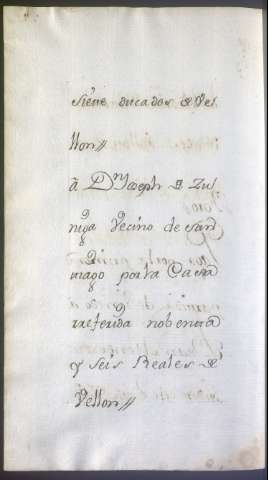 siete ducados de Ve-
llon //
a Dn Joseph de Zu
niga Vecino de San
tiago por la Casa
referida nobenta
y seis Reales de
Vellon //